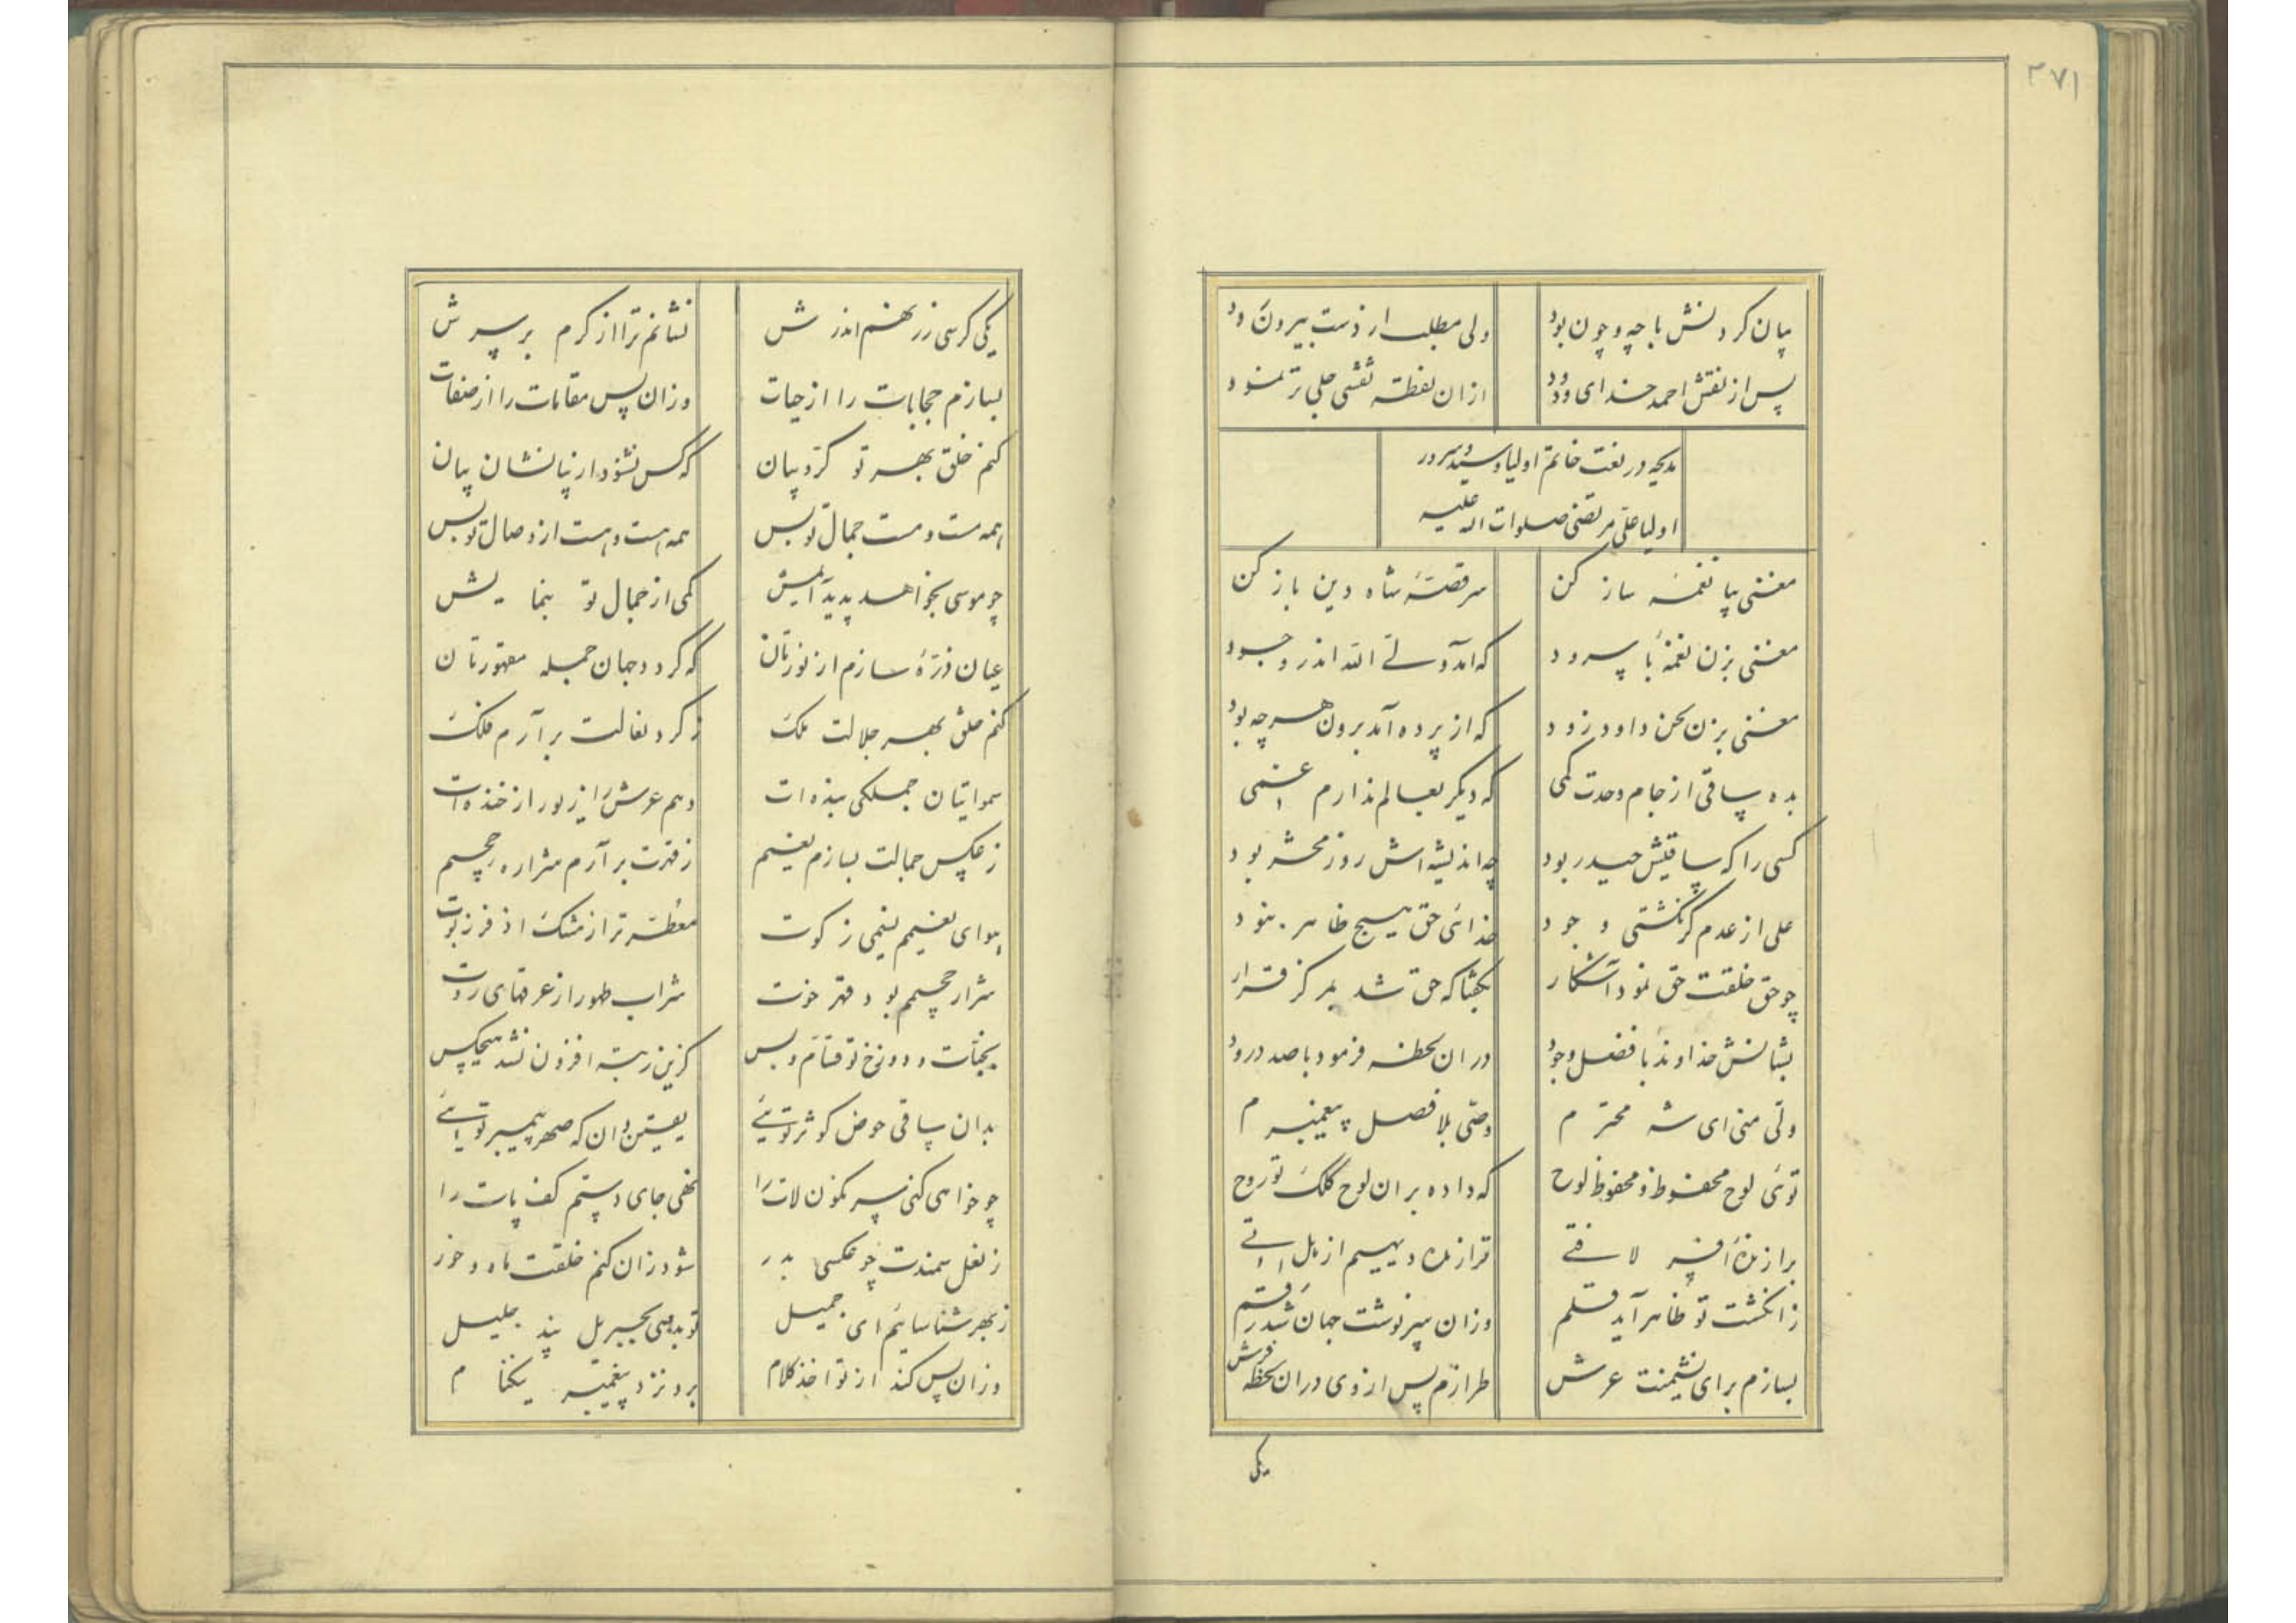 ۳۷۱
بیان کردنش با چه و چون بود ولی مطلب از دست بیرون رود
پس از نقش احمد خدای ودود از ان نقطه نقشی جلی تر نمود
مدیحه در نعت خاتم اولیا و سید و سرور
اولیا علی مرتضی صلوات اله علیه
مغنی بیا نغمهٔ ساز کن سر قصهٔ شاه دین باز کن
مغنی بزن نغمهٔ با سرود که آمد ولی الله اندر وجود
مغنی بزن لحن داود زود که از پرده آمد برون هر چه بود
بده ساقی از جام وحدت کمی که دیگر بعالم ندارم غمی
کسی را که ساقیش حیدر بود چه اندیشه اش روز محشر بود
علی از عدم گر نگشتی وجود خدائی حق هیچ ظاهر نبود
چو حق خلقت حق نمود آشکار بگفتا که حق شد بمرکز قرار
بشانش خداوند با فضل وجود در ان لحظه فرمود با صد درود
ولی منی ای شه محترم وصی بلا فصل پیغمبرم
توئی لوح محفوظ و محفوظ لوح که داده بر ان لوح کلک تو روح
برازندهٔ افسر لا فتی فرازندهٔ دیهیم از هل اتی
ز انگشت تو ظاهر آید قلم وزان سرنوشت جهان شد رقم
بسازم برای نشیمنت عرش طرازم پس از وی در ان لحظه فرش
یکی
یکی کرسی زر نهم اندرش نشانم ترا از کرم بر سرش
بسازم حجابات را از حیات وزان پس مقامات را از صفات
کنم خلق بهر تو کروبیان که کس نشنود از نیانشان بیان
همه مست و مست جمال تو بس همه هست و هست از وصال تو بس
چو موسی بخواهد پدید آیمش کمی از جمال تو بنمایمش
عیان ذرهٔ سازم از نورتان که گردد جهان جمله مقهورتان
کنم خلق بهر جلالت ملک ز گرد نعالت بر آرم فلک
سمواتیان جملکی بنده ات دهم عرش را زیور از خنده ات
ز عکس جمالت بسازم نعیم ز قهرت بر آرم شراره جحیم
هوای نعیمم نمی ز کوت معطر تر از مشک اذفر ز بوت
شرار جحیمم بود قهر خوت شراب طهور از عرقهای روت
بجنات و دوزخ تو قسام و بس کزین رتبه افزون نشد هیچکس
بدان ساقی حوض کوثر توئی یقین دان که صهر پیمبر توئی
چو خواهی کنی سر نگون لات را نهی جای دستم کف پات را
ز نعل سمندت چو عکسی بدر شود زان کنم خلقت ماه و خور
ز بهر شناسائیم ای جمیل تو بدهی بجبریل پند جلیل
وزان پس کند از تو اخذ کلام برد نزد پیغمبر نیکنام